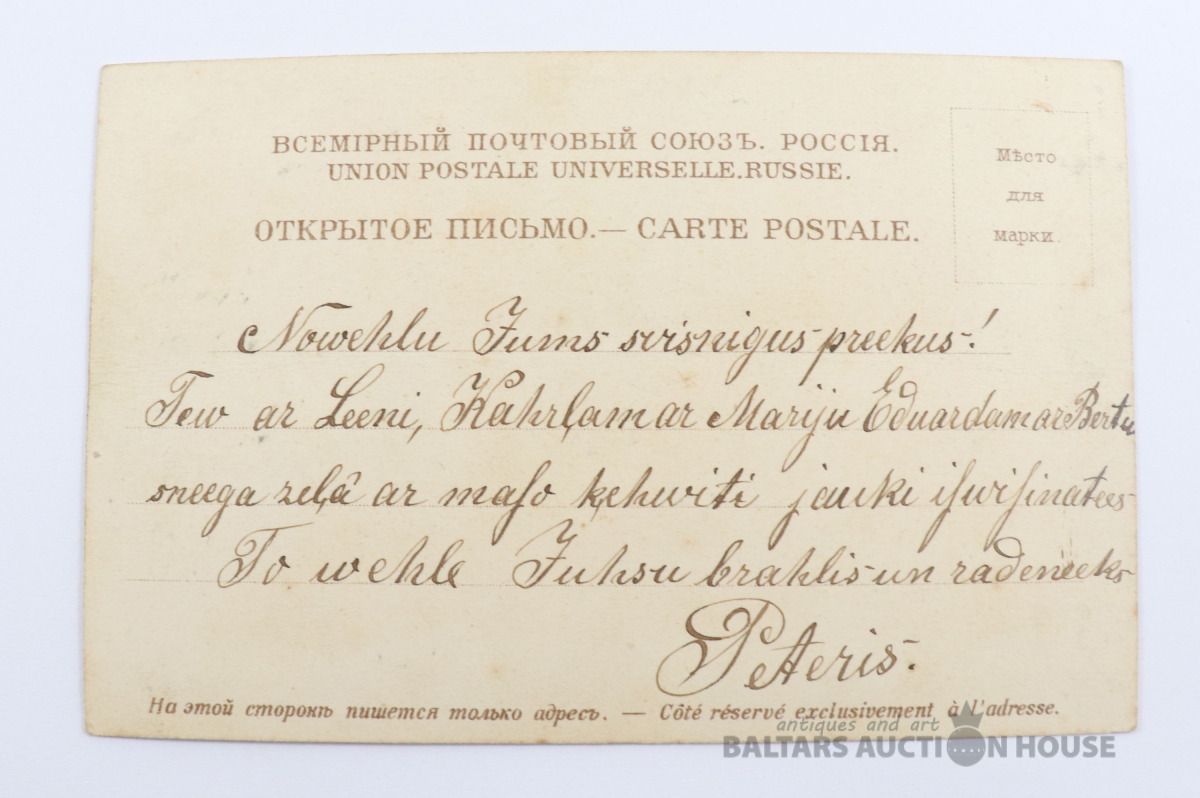 ВСЕМІРНЫЙ ПОЧТОВЫЙ СОЮЗЪ. РОССІЯ.
UNION POSTALE UNIVERSELLE.RUSSIE.
ОТКРЫТОЕ ПИСЬМО.— CARTE POSTALE.
Мѣсто
для
марки.
Nowehlu Jums preekus!
Tew ar Leeni, Kahrļam ar Mariju Eduardam ar Bertu
sneega zeļâ ar maſo ķehwiti jauki iſwiſinatees
To wehle Juhsu brahlis un radeneeks
Peteris.
На этой сторонѣ пишется только адресъ. — Côté réservé exclusivement à l'adresse.
antiques and art
BALTARS AUCTION HOUSE